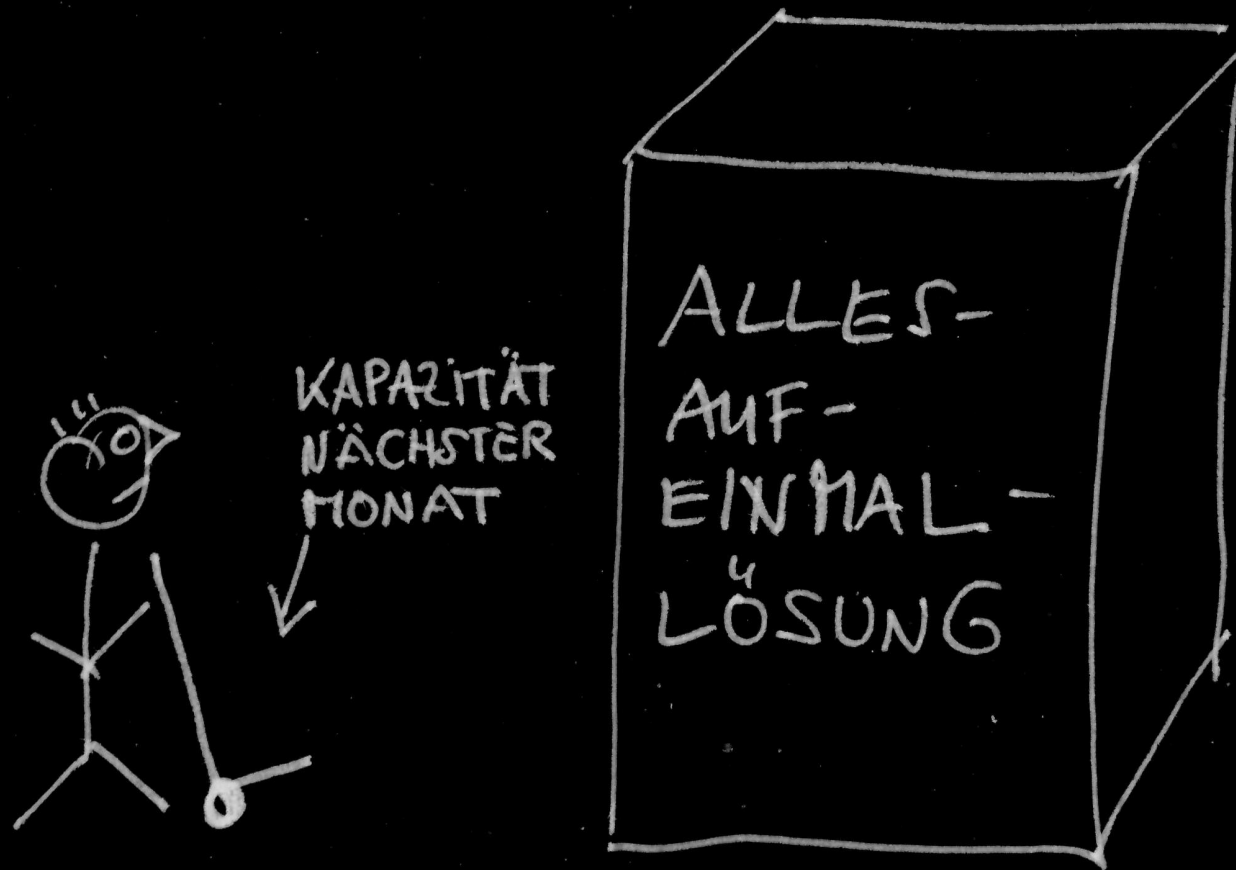 KAPAZITÄT
NÄCHSTER
MONAT
ALLES-
AUF-
EINMAL-
LÖSUNG